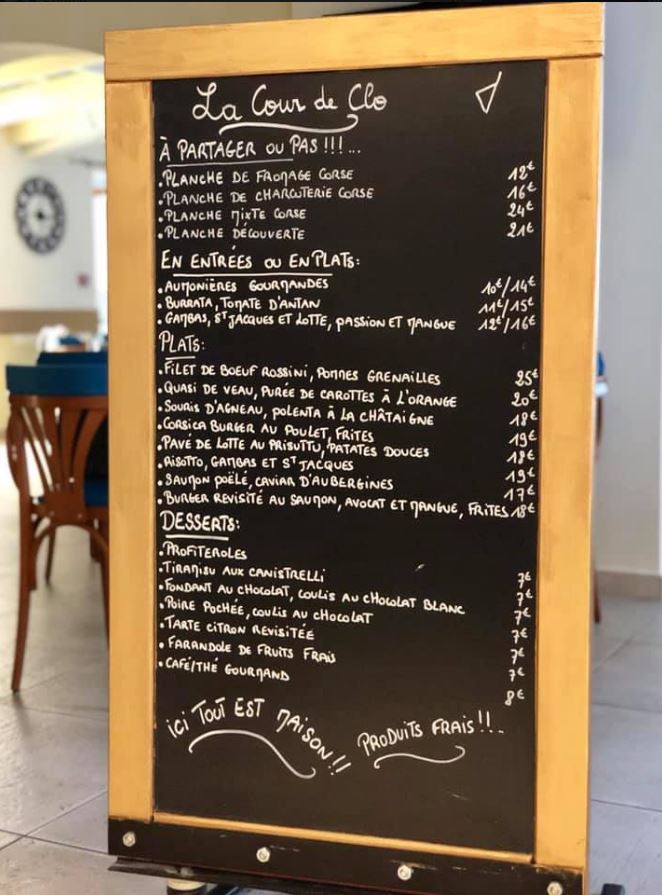 La Cour de Clo
À PARTAGER OU PAS !!!...
.PLANCHE DE FROMAGE CORSE 12€
.PLANCHE DE CHARCUTERIE CORSE 16€
.PLANCHE MIXTE CORSE 24€
.PLANCHE DÉCOUVERTE 21€
EN ENTRÉES OU EN PLATS:
.AUMONIÈRES GOURMANDES 10€/14€
.BURRATA, TOMATE D'ANTAN 11€/15€
.GAMBAS, ST JACQUES ET LOTTE, PASSION ET MANGUE 12€/16€
PLATS:
.FILET DE BOEUF ROSSINI, POMMES GRENAILLES 25€
.QUASI DE VEAU, PURÉE DE CAROTTES À L'ORANGE 20€
.SOURIS D'AGNEAU, POLENTA À LA CHÂTAIGNE 18€
.CORSICA BURGER AU POULET, FRITES 19€
.PAVÉ DE LOTTE AU PRISUTTU, PATATES DOUCES 18€
.RISOTTO, GAMBAS ET ST JACQUES 19€
.SAUMON POËLÉ, CAVIAR D'AUBERGINES 17€
.BURGER REVISITÉ AU SAUMON, AVOCAT ET MANGUE, FRITES 18€
DESSERTS:
.PROFITEROLES 7€
.TIRAMISU AUX CANISTRELLI 7€
.FONDANT AU CHOCOLAT, COULIS AU CHOCOLAT BLANC 7€
.POIRE POCHÉE, COULIS AU CHOCOLAT 7€
.TARTE CITRON REVISITÉE 7€
.FARANDOLE DE FRUITS FRAIS 7€
.CAFÉ/THÉ GOURMAND 8€
ICI TOUT EST MAISON!!
PRODUITS FRAIS!!..